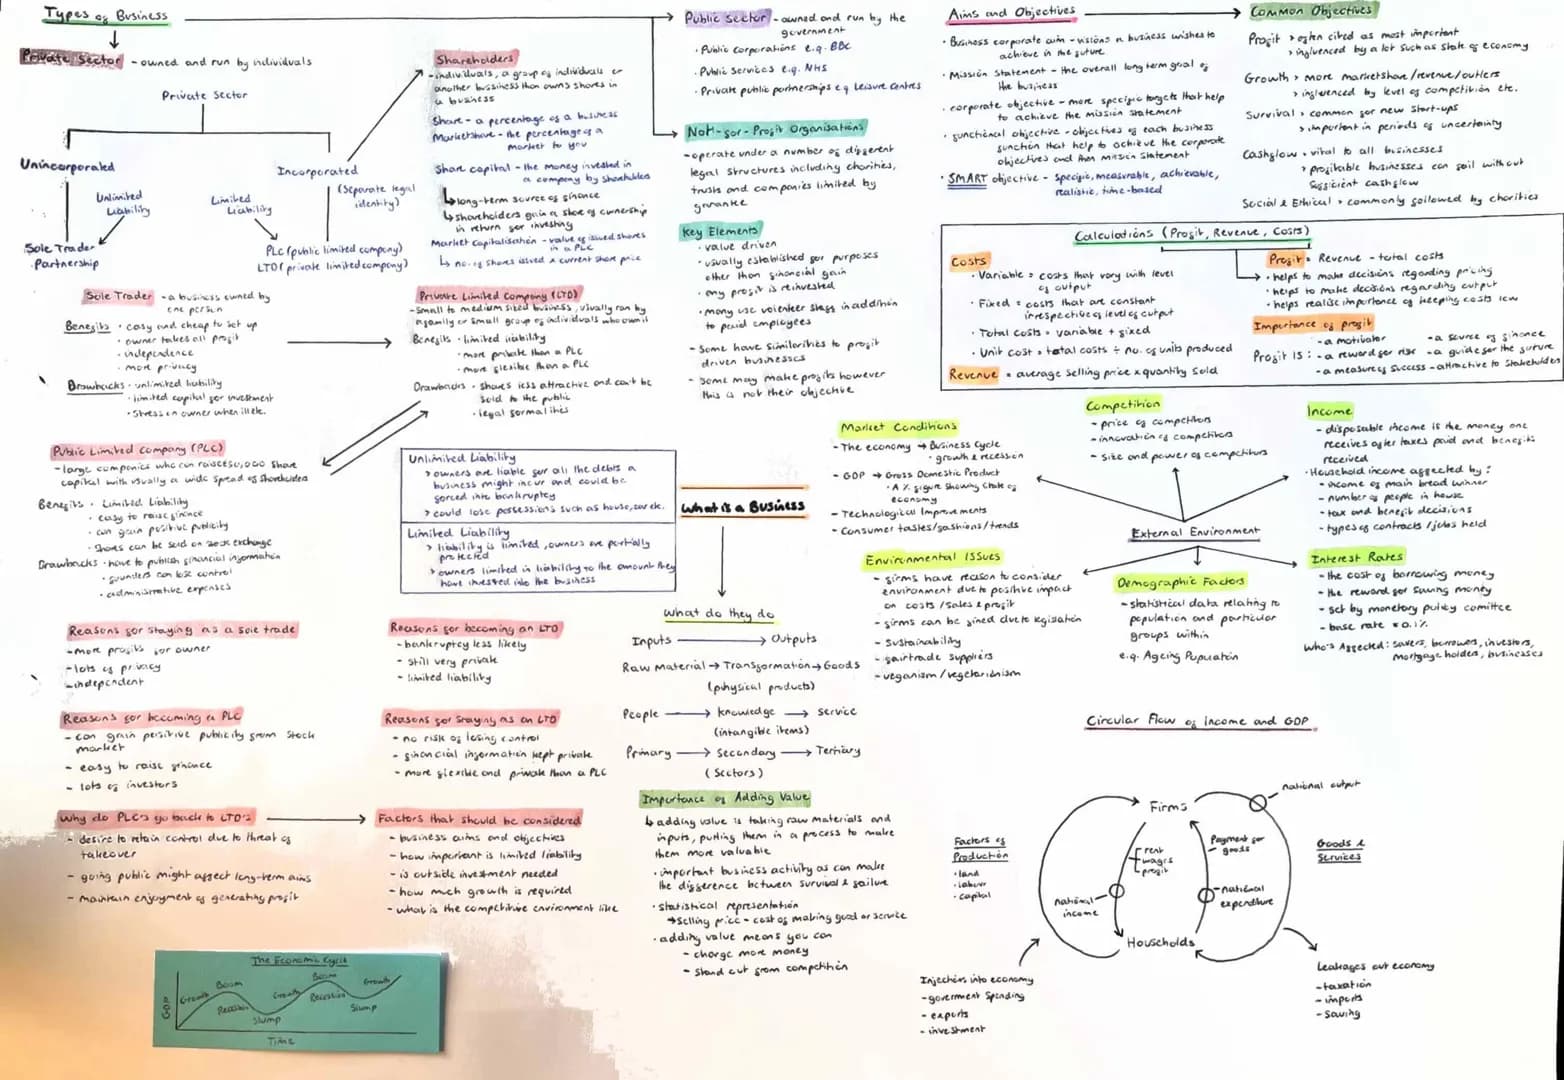 Types of Business
Private Sector - owned and run by individuals
Private Sector
Unincorporated
Incorporated
(Separate legal
identity)
Unlimited
Liability
Limited
Liability
Sole Trader
Partnership
PLC (public limited company)
LTD (private limited company)
Shareholders
- individuals, a group of individuals or
another business than owns shares in
a business
Share - a percentage of a business
Marketshare - the percentage of a
market to you
Share capital - the money invested in
a company by shareholders
↳ long-term source of finance
↳ shareholders gain a share of ownership
in return for investing
Market capitalisation - value of issued shares
in a PLC
↳ no. of shares issued x current share price
Sole Trader - a business owned by
one person
Benefits · easy and cheap to set up
· owner takes all profit
· independence
· more privacy
Drawbacks · unlimited liability
· limited capital for investment
· stress on owner when ill etc.
Private Limited Company (LTD)
- Small to medium sized business, usually run by
a family or small group of individuals who own it
Benefits · limited liability
· more private than a PLC
· more flexible than a PLC
Drawbacks · shares less attractive and can't be
sold to the public
· legal formalities
Public Limited Company (PLC)
- large companies who can raise £50,000 share
capital with usually a wide spread of shareholders
Benefits · Limited Liability
· easy to raise finance
· can gain positive publicity
· shares can be sold on stock exchange
Drawbacks · have to publish financial information
· founders can lose control
· administrative expenses
Unlimited Liability
> owners are liable for all the debts a
business might incur and could be
forced into bankruptcy
> could lose possessions such as house, car etc.
Limited Liability
> liability is limited, owners are partially
protected
> owners limited in liability to the amount they
have invested into the business
Reasons for staying as a sole trade
- more profits for owner
- lots of privacy
- independent
Reasons for becoming an LTD
- bankruptcy less likely
- still very private
- limited liability
Reasons for becoming a PLC
- can gain positive publicity from stock
market
- easy to raise finance
- lots of investors
Reasons for staying as an LTD
- no risk of losing control
- financial information kept private
- more flexible and private than a PLC
Why do PLC's go back to LTD's
- desire to retain control due to threat of
takeover
- going public might affect long-term aims
- maintain enjoyment of generating profit
Factors that should be considered
- business aims and objectives
- how important is limited liability
- is outside investment needed
- how much growth is required
- what is the competitive environment like
The Economic Cycle
GDP
Growth
Boom
Recession
Slump
Growth
Boom
Recession
Slump
Growth
Time
Public Sector - owned and run by the
government
· Public corporations e.g. BBC
· Public services e.g. NHS
· Private public partnerships e.g Leisure centres
Not-for-Profit Organisations
- operate under a number of different
legal structures including charities,
trusts and companies limited by
garantee
Key Elements
· value driven
· usually established for purposes
other than financial gain
· any profit is reinvested
· many use volenteer staff in addition
to paid employees
- Some have similarities to profit
driven businesses
- some may make profits however
this is not their objective
What is a Business
What do they do
Inputs → Outputs
Raw Material → Transformation → Goods
(physical products)
People → knowledge → service
(intangible items)
Primary → Secondary → Tertiary
(Sectors)
Importance of Adding Value
↳ adding value is taking raw materials and
inputs, putting them in a process to make
them more valuable
· important business activity as can make
the difference between survival & failure
· statistical representation
→ selling price - cost of making good or service
· adding value means you can
- charge more money
- stand out from competition
Aims and Objectives
· Business corporate aim - visions a business wishes to
achieve in the future
· Mission Statement - the overall long term goal of
the business
· corporate objective - more specific targets that help
to achieve the mission statement
· functional objective - objectives of each business
function that help to achieve the corporate
objectives and then mission statement
· SMART objective - specific, measurable, achievable,
realistic, time-based
Common Objectives
Profit > often cited as most important
> influenced by a lot such as state of economy
Growth > more marketshare/revenue/outlets
> influenced by level of competition etc.
Survival > common for new start-ups
> important in periods of uncertainty
Cashflow > vital to all businesses
> profitable businesses can fail without
sufficient cashflow
Social & Ethical > commonly followed by charities
Calculations (Profit, Revenue, Costs)
Costs
· Variable = costs that vary with level
of output
· Fixed = costs that are constant
irrespective of level of output
· Total costs = variable + fixed
· Unit cost = total costs ÷ no. of units produced
Revenue = average selling price x quantity sold
Profit = Revenue - total costs
· helps to make decisions regarding pricing
· helps to make decisions regarding output
· helps realise importance of keeping costs low
Importance of profit
Profit is:
- a motivator
- a reward for risk
- a measure of success
- a source of finance
- a guide for the future
- attractive to stakeholders
Market Conditions
- The economy → Business Cycle
· growth & recession
- GDP → Gross Domestic Product
· A % figure showing state of
economy
- Technological Improvments
- Consumer tastes/fashions/trends
Competition
- price of competitors
- innovation of competitors
- size and power of competitors
Income
- disposable income is the money one
receives after taxes paid and benefits
received
· Household income affected by:
- income of main bread winner
- number of people in house
- tax and benefit decisions
- types of contracts/jobs held
External Environment
Environmental Issues
- firms have reason to consider
environment due to positive impact
on costs/sales & profit
- firms can be fined due to legislation
- Sustainability
- fairtrade suppliers
- veganism/vegetarianism
Demographic Factors
- statistical data relating to
population and particular
groups within
e.g. Ageing Population
Interest Rates
- the cost of borrowing money
- the reward for saving money
- set by monetary policy comittee
- base rate = 0.1%
Who's Affected: savers, borrowers, investors,
mortgage holders, businesses
Circular Flow of Income and GDP
Firms
Households
national output
Factors of
Production
· land
· labour
· capital
rent
wages
profit
national
income
Payment for
goods
national
expenditure
Goods &
Services
Injections into economy
- government spending
- exports
- investment
Leakages out economy
- taxation
- imports
- saving